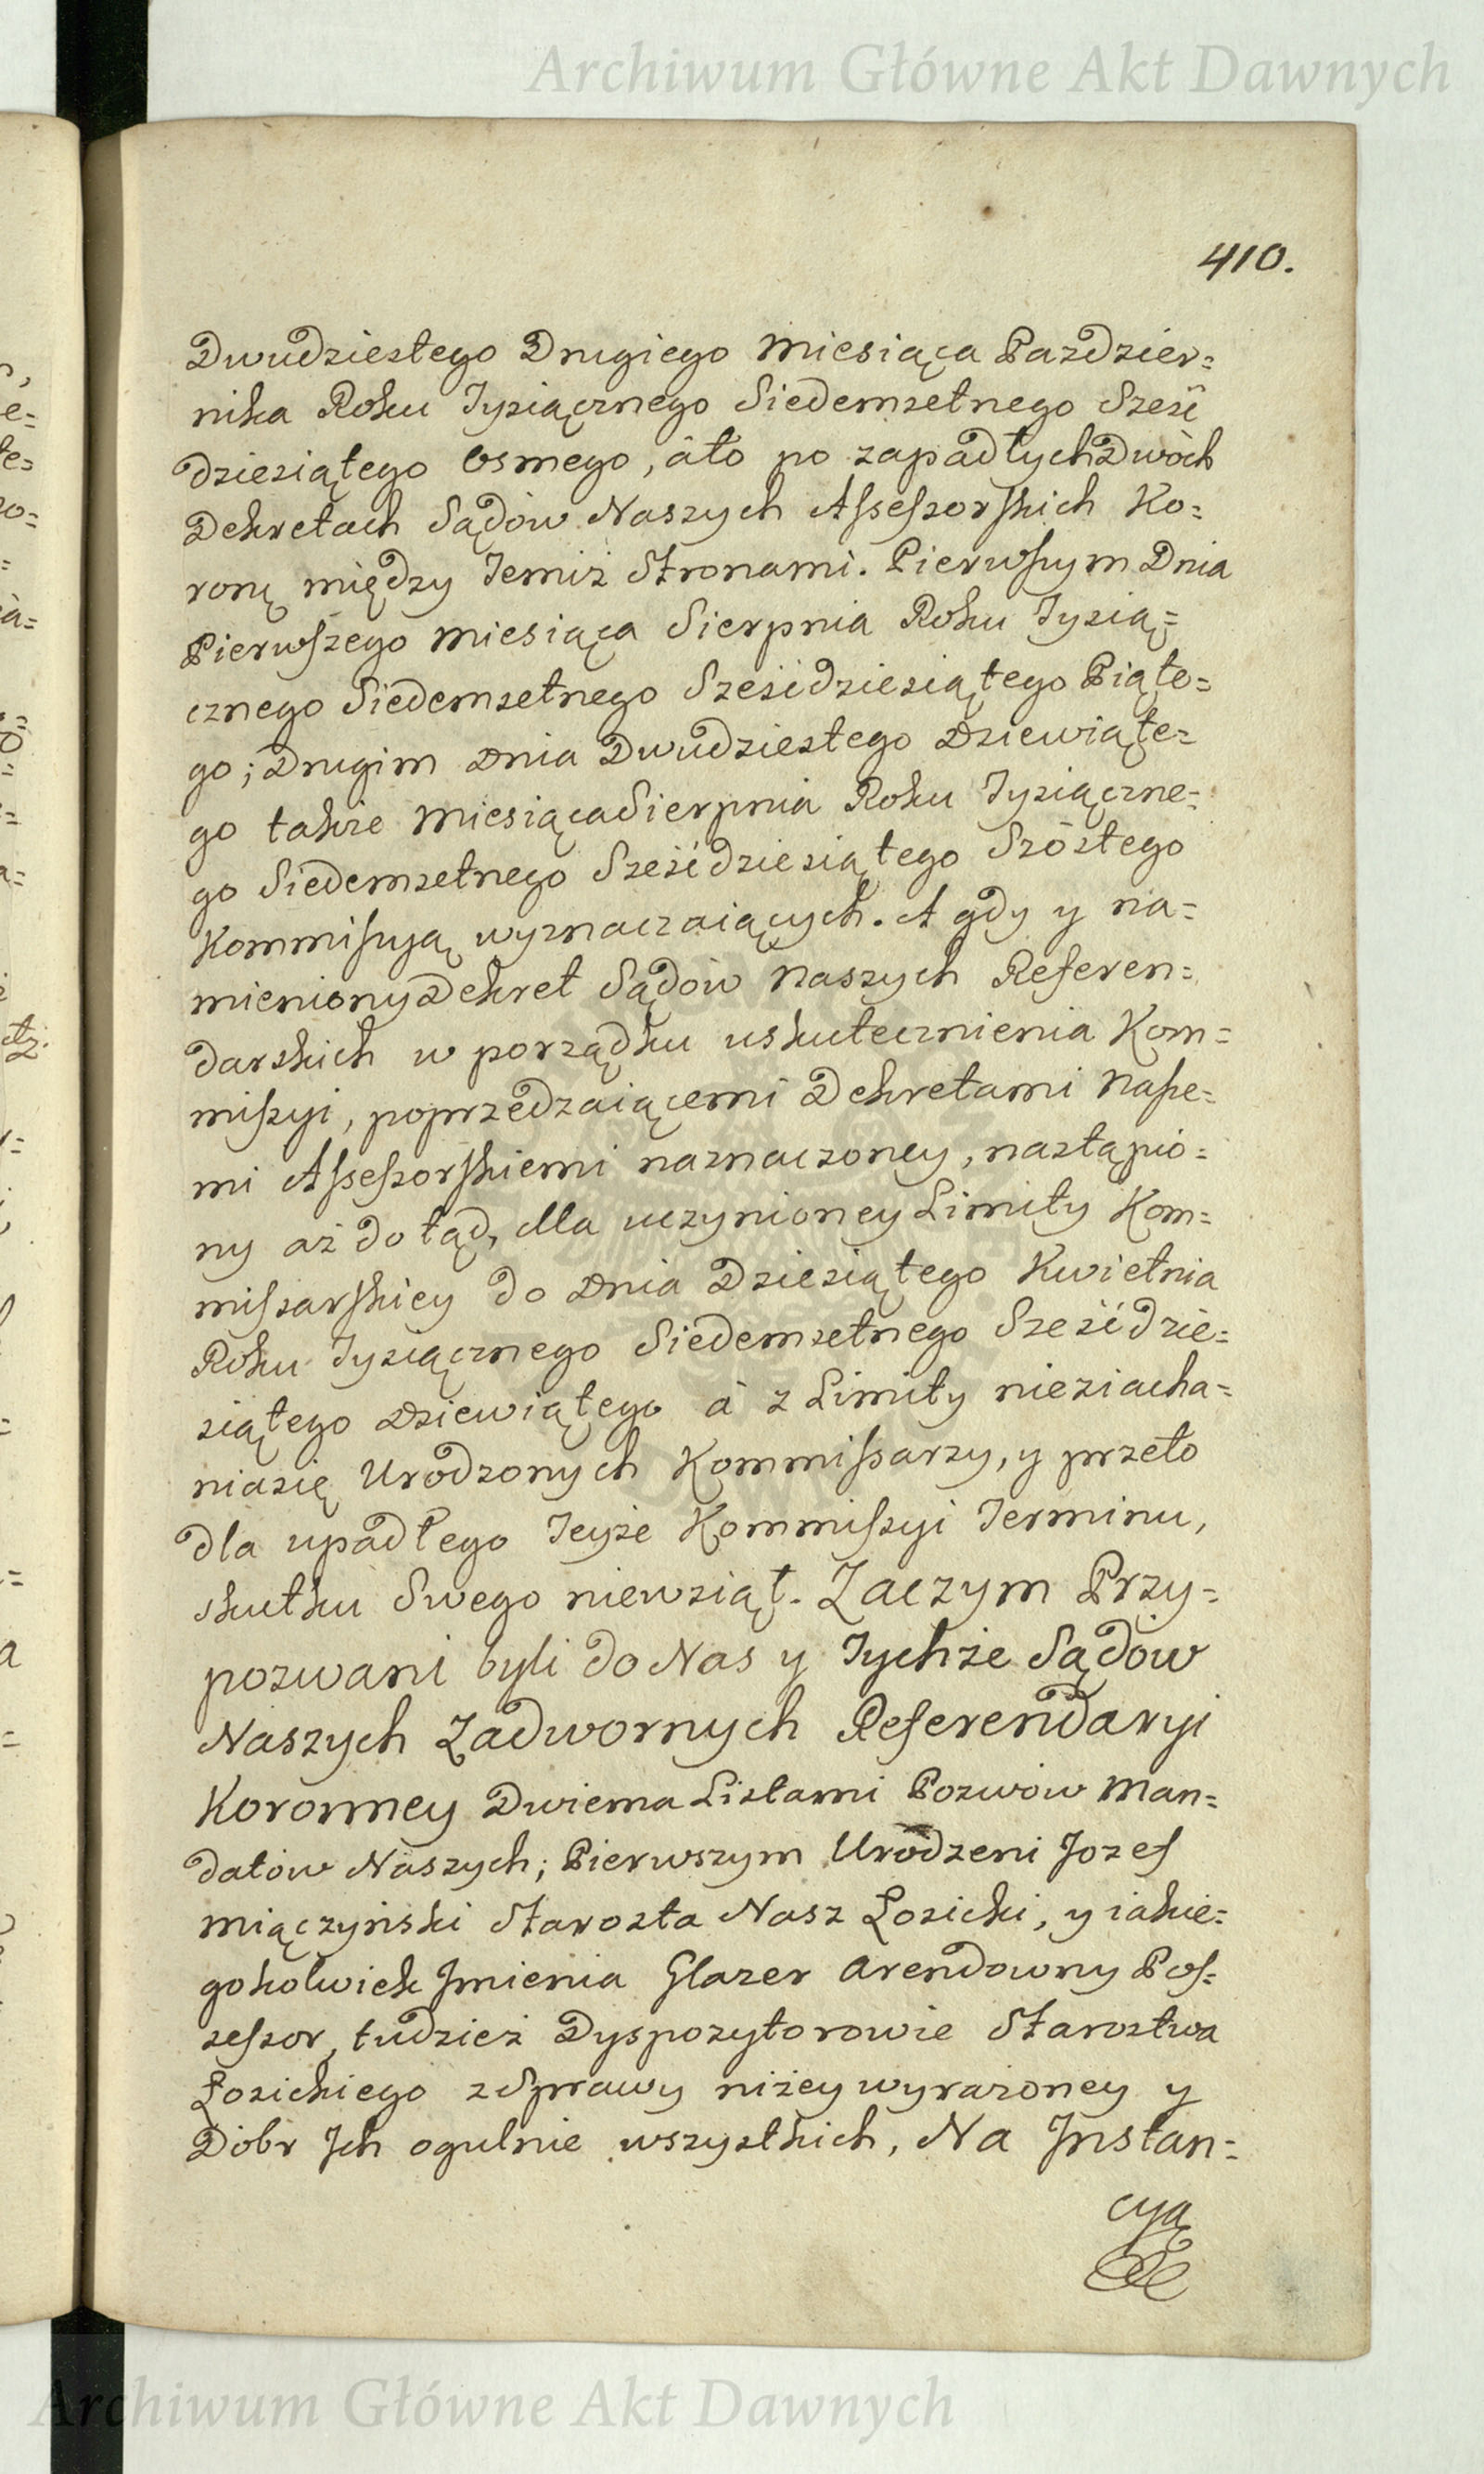 Archiwum Główne Akt Dawnych
410.
Dwudziestego Drugiego Miesiąca Pazdzier=
nika Roku Tysiącznego Siedemsetnego Sześć
dziesiątego Osmego, áto po zapadłych Dwóch
Dekretach Sądow Naszych Assessorskich Ko=
ronę między Temiż Stronami. Pierwszym Dnia
Pierwszego Miesiąca Sierpnia Roku Tysią=
cznego Siedemsetnego Sześćdziesiątego Piąte=
go; Drugim Dnia Dwudziestego Dziewiąte=
go także Miesiąca Sierpnia Roku Tysiączne=
go Siedemsetnego Sześćdziesiątego Szóstego
Kommissyą wyznaczaiących. A gdy y na=
mieniony Dekret Sądow Naszych Referen=
darskich w porządku uskutecznienia Kom=
missyi, poprzedzaiącemi Dekretami Nasze=
mi Assessorskiemi naznaczoney, nastąpio=
ny aż do tąd, dla uczynioney Limity Kom=
missarskiey do Dnia Dziesiątego Kwietnia
Roku Tysiącznego Siedemsetnego Sześćdzie=
siątego Dziewiątego á z Limity nieziacha=
niasię Urodzonych Kommissarzy, y przeto
dla upadłego Teyże Kommissyi Terminu,
skutku Swego niewziął. Zaczym Przy=
pozwani byli do Nas y Tychże Sądow
Naszych Zadwornych Referendaryi
Koronney Dwiema Listami Pozwow Man=
datow Naszych; Pierwszym Urodzeni Jozef
Miączyński Starosta Nasz Łosicki, y iakie=
gokolwiek Jmienia Glazer Arendowny Pos=
sessor, tudzież Dyspozytorowie Starostwa
Łosickiego z Sprawy niżey wyrażoney y
Dobr Jch ogulnie wszystkich, Na Jnstan=
cyą
Archiwum Główne Akt Dawnych